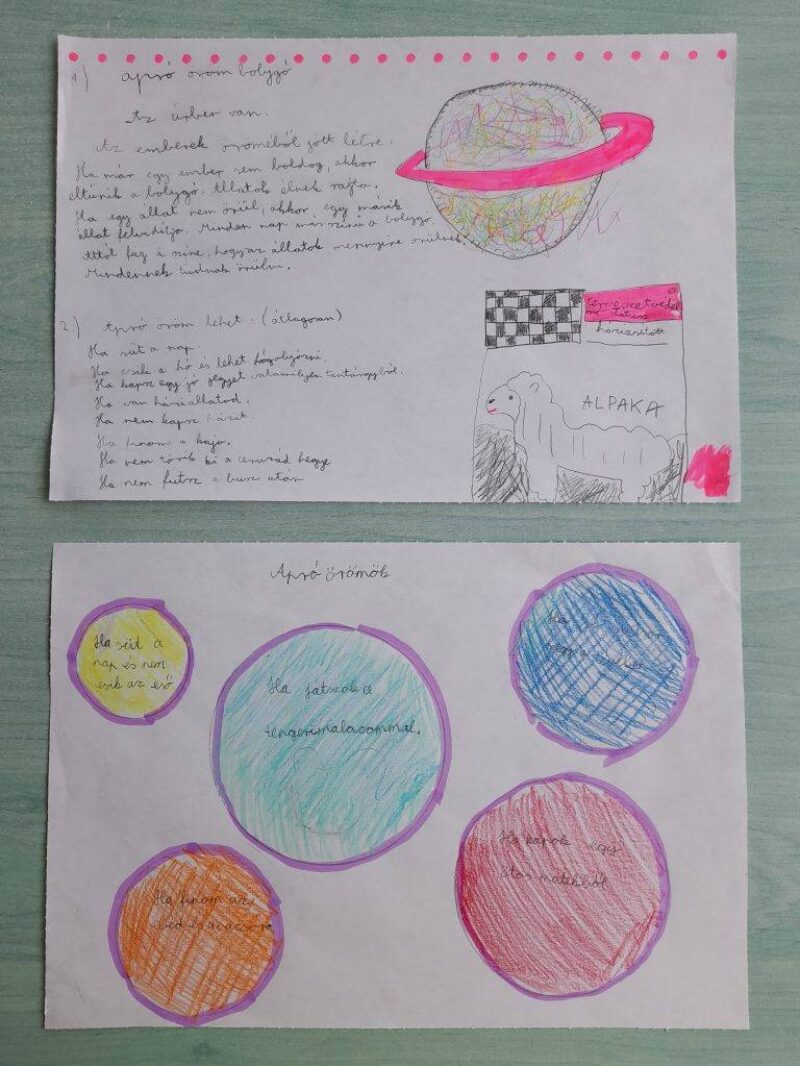 1) Apró öröm bolygó
Az űrben van.
Az emberek öröméből jött létre.
Ha már egy ember sem boldog, akkor
eltűnik a bolygó. Állatok élnek rajta.
Ha egy állat nem örül, akkor egy másik
állat felvidítja. Minden nap más színű a bolygó
Attól füg a színe, hogy az állatok mennyire örülnek.
Mindennek tudnak örülni.
természetvédel
mi státusz
háziasított
ALPAKA
2) Apró öröm lehet: (átlagosan)
Ha süt a nap.
Ha esik a hó és lehet hógolyózni.
Ha kapsz egy jó jegyet valamilyen tantárgyból.
Ha van háziállatod.
Ha nem kapsz házit.
Ha finom a kaja.
Ha nem törik ki a ceruzád hegye
Ha nem futsz a busz után
Apró örömök
Ha süt a
nap és nem
esik az eső.
Ha játszok a
tengerimalacommal.
Ha
Ha finom az
ebéd és a vacsora
Ha kapok egy
ötös matekból